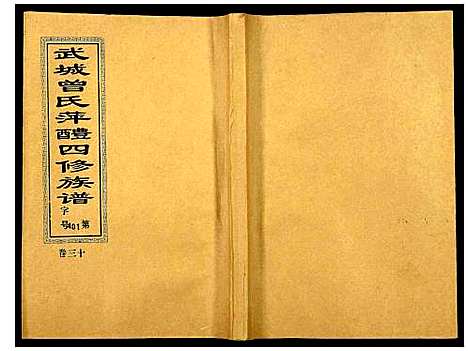 武城曾氏萍醴四修族谱
字
第401号
卷三十